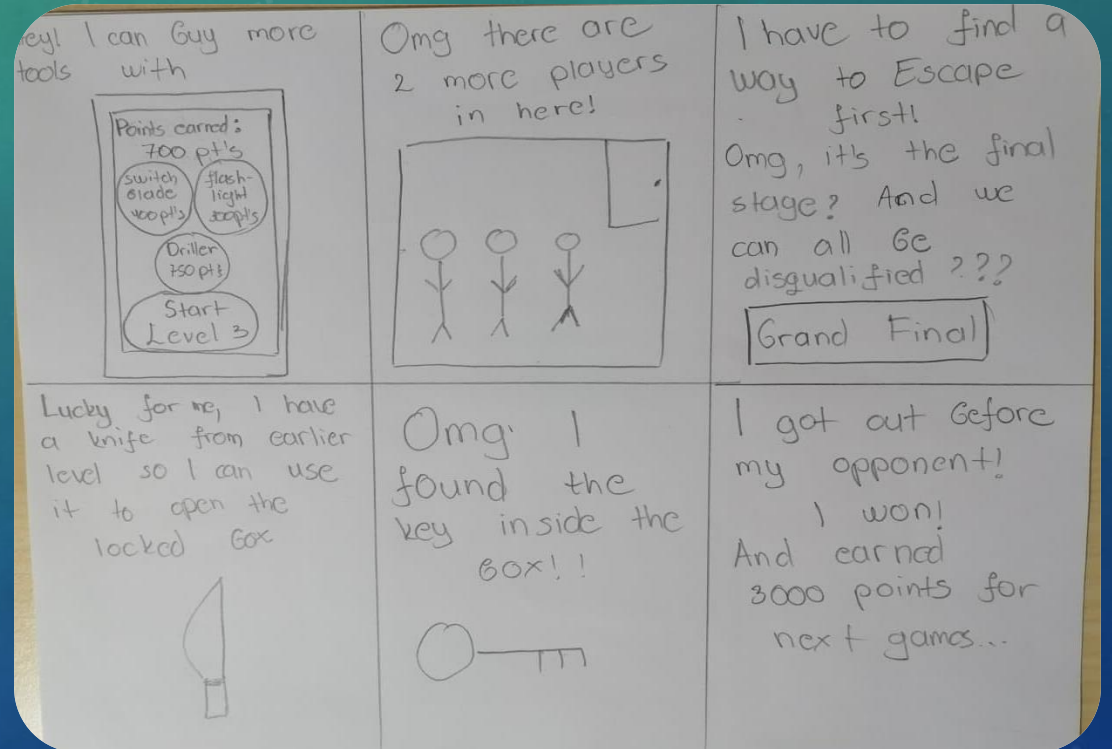 ey! I can buy more
tools with
Points earned:
700 pt's
switch
blade
400pt's
flash-
light
300pt's
Driller
750 pt's
Start
Level 3
Omg there are
2 more players
in here!
I have to find a
way to Escape
first!
Omg, it's the final
stage? And we
can all be
disqualified ???
Grand Final
Lucky for me, I have
a knife from earlier
level so I can use
it to open the
locked box
Omg I
found the
key inside the
box!!
I got out before
my opponent!
I won!
And earned
3000 points for
next games...